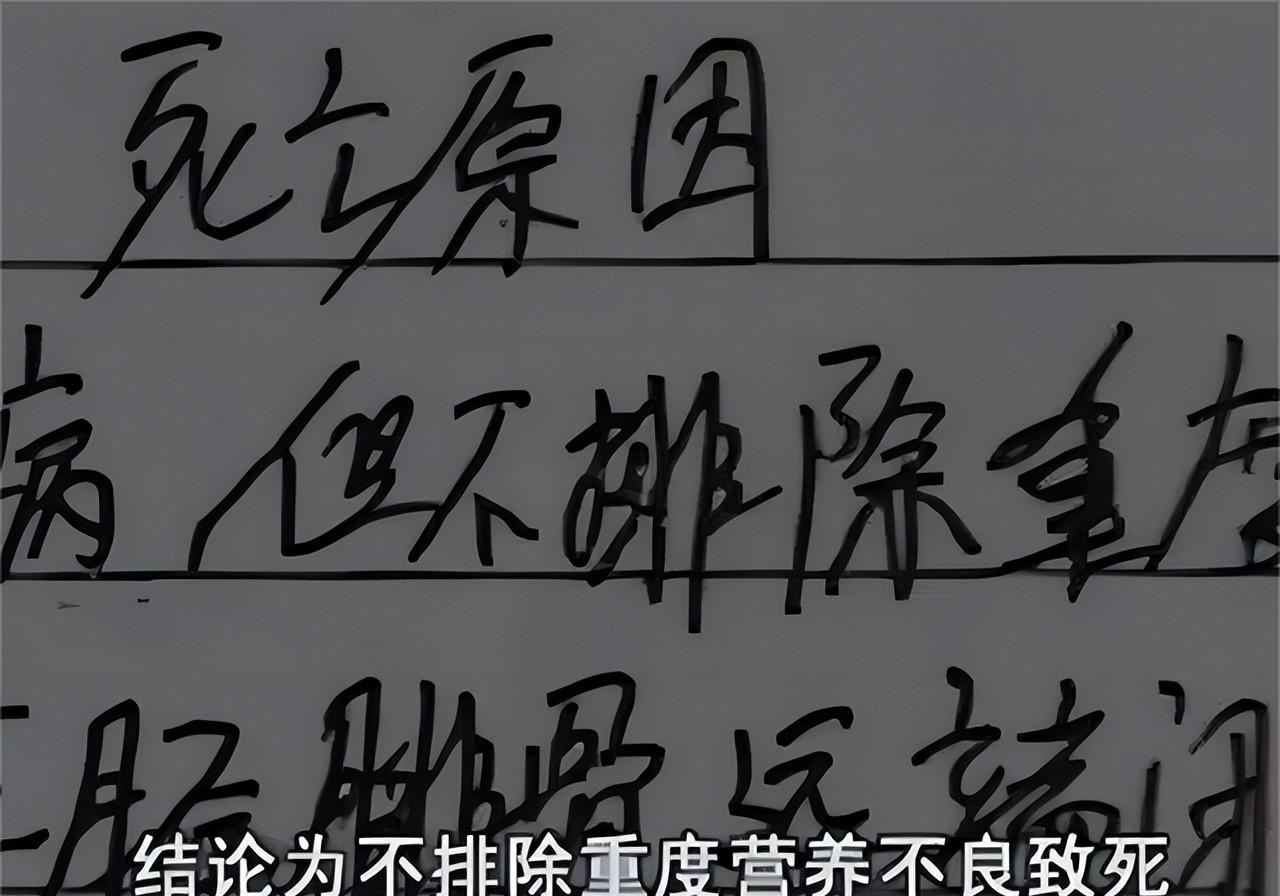 死亡原因
病 但不排除重度
胫腓骨远端闭
结论为不排除重度营养不良致死